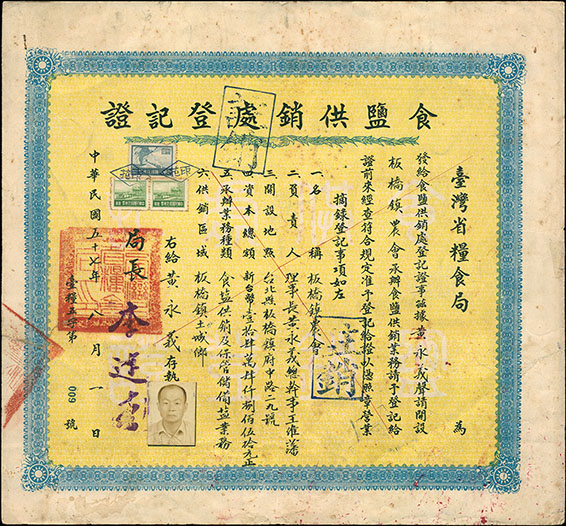 食鹽供銷處登記證
註銷
臺灣省糧食局 為
發給食鹽供銷處登記證事茲據黃永義聲請開設
板橋鎮農會承辦食鹽供銷業務請予登記給
證前來經查符合規定准予登記給證以憑照章營業
摘錄登記事項如左
一名稱 板橋鎮農會
二負責人 理事長黃永義總幹事王維藩
三開設地點 台北縣板橋鎮府中路二九號
四資本總額 新台幣壹拾肆萬肆仟捌佰伍拾元正
五承辦業務種類 食鹽供銷及保管儲備鹽業務
六供銷區域 板橋鎮土城鄉
右給黃永義存執
局長李連春
中華民國五十七年八月一日
臺糧五字第 009 號
註銷